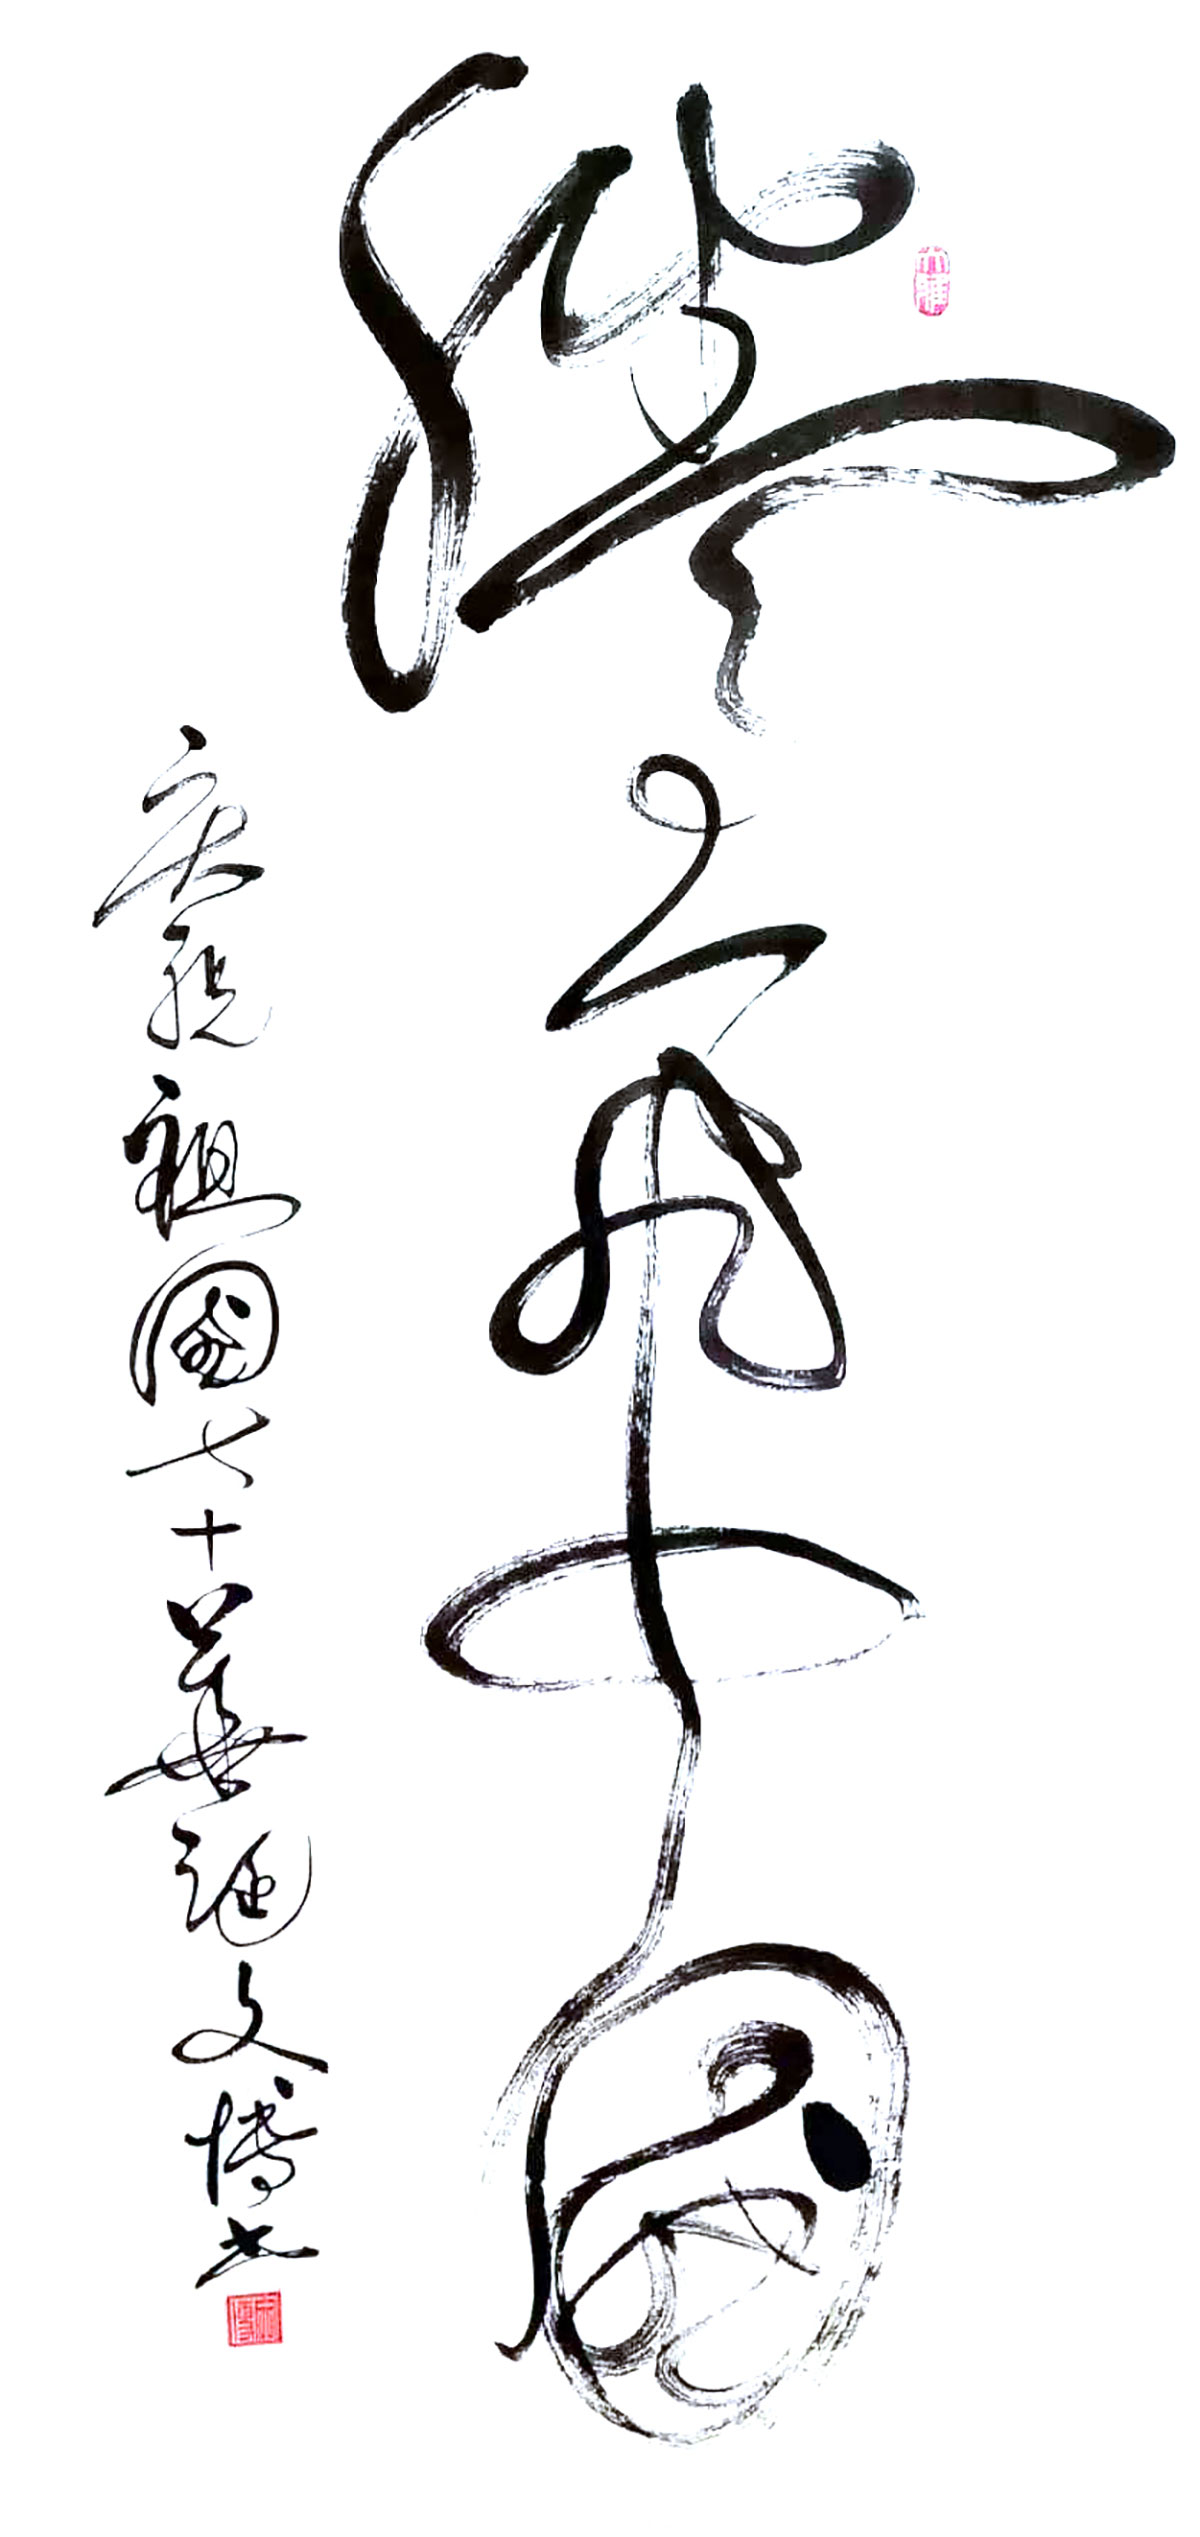 騰飛中國
慶祝祖國七十華誕文博書